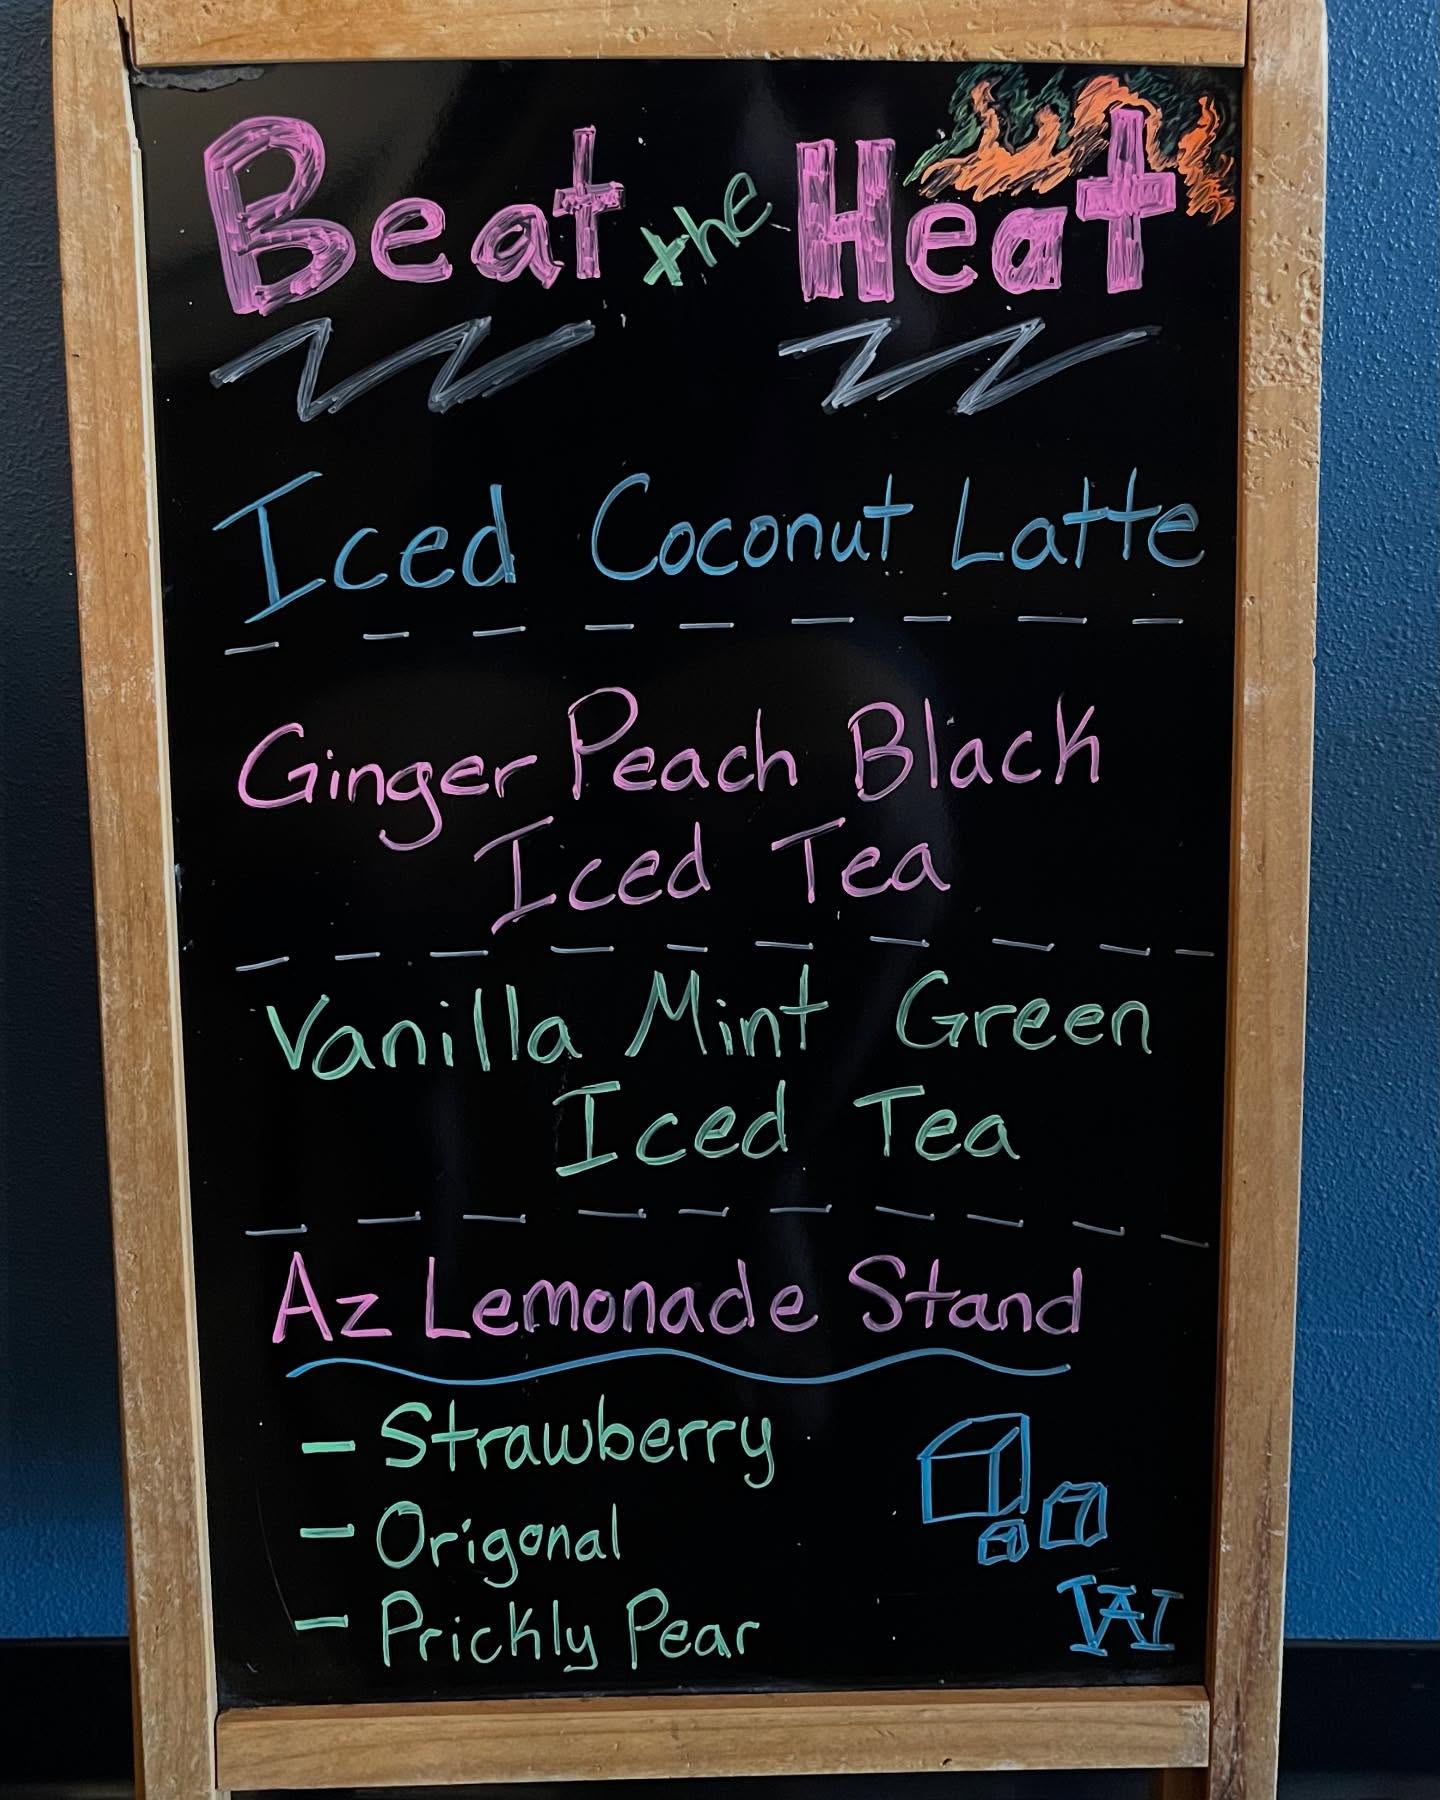 Beat the Heat
Iced Coconut Latte
Ginger Peach Black
Iced Tea
Vanilla Mint Green
Iced Tea
Az Lemonade Stand
- Strawberry
- Origonal
- Prickly Pear